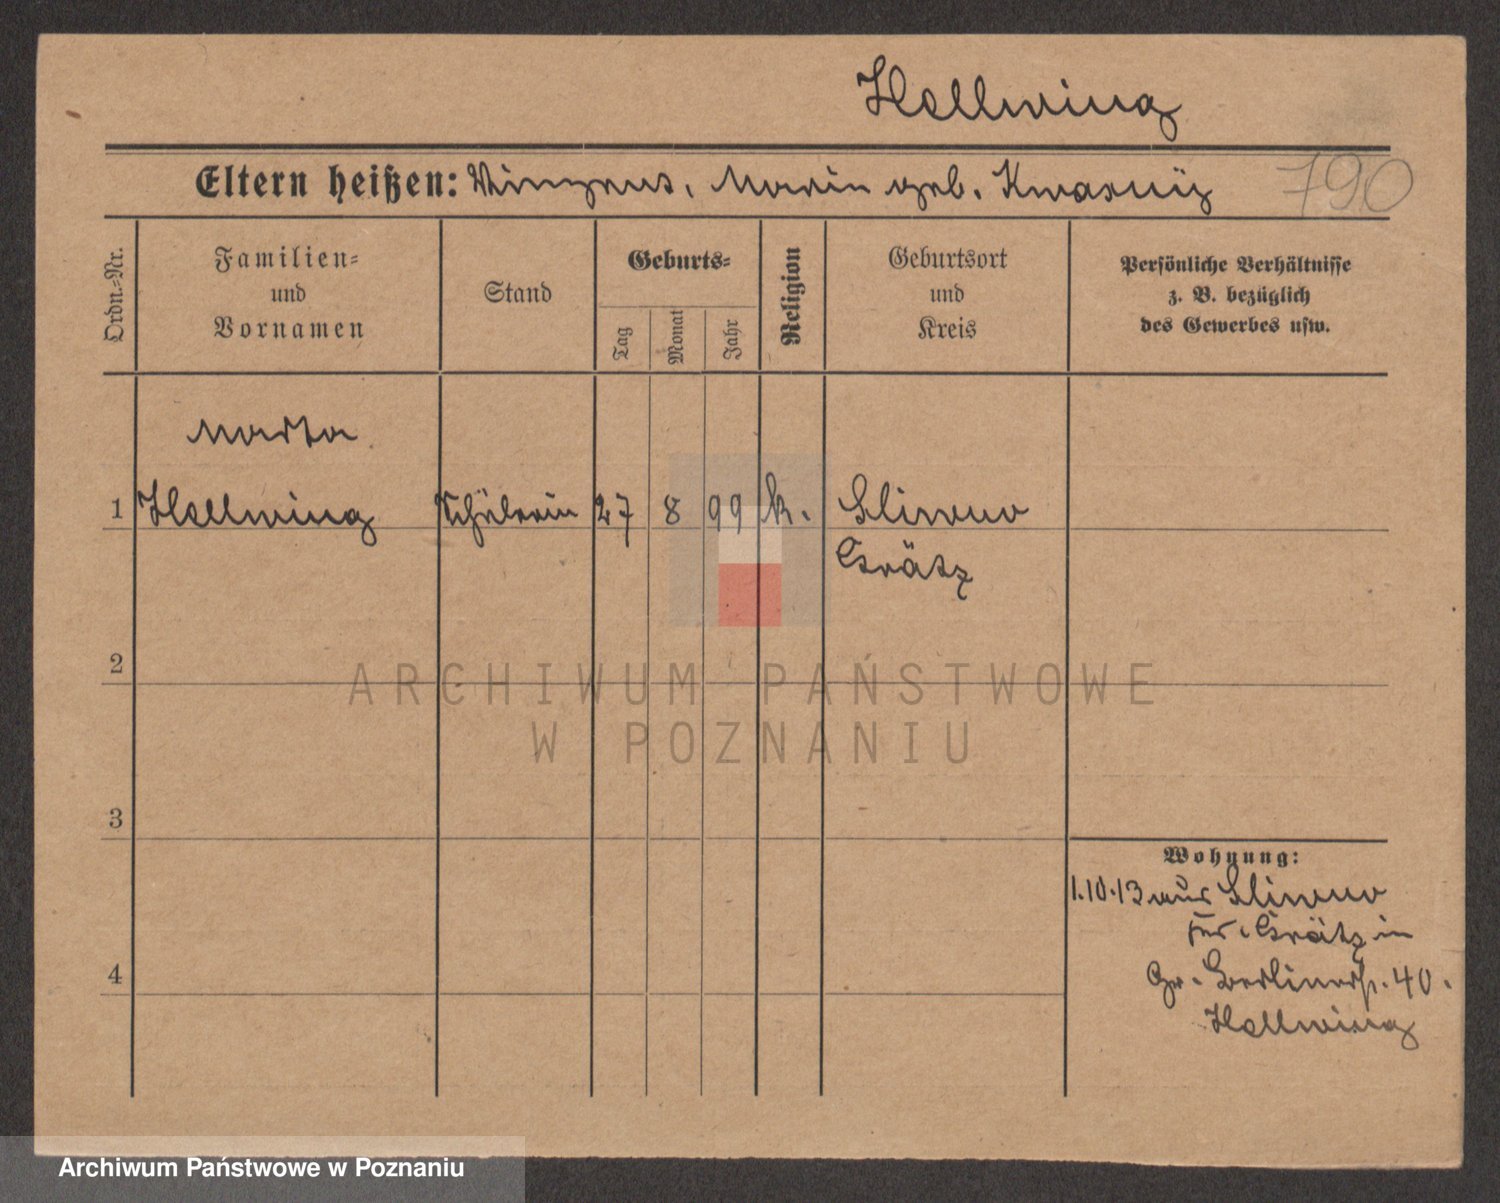 Hellwing
Eltern heißen: Vinzens, Marie geb. Kwasniz
790
Ordn.-Nr.
Familien-
und
Vornamen
Stand
Geburts-
Tag
Monat
Jahr
Religion
Geburtsort
und
Kreis
Persönliche Verhältnisse
z. B. bezüglich
des Gewerbes usw.
Marta
1 Hellwing Schülerin 27 8 99 k. Sliwno
Grätz
2
3
4
Wohnung:
1.10.13 aus Sliwno
Grätz in
Gr. Berlinerstr. 40.
Hellwing
ARCHIWUM PAŃSTWOWE
W POZNANIU
Archiwum Państwowe w Poznaniu